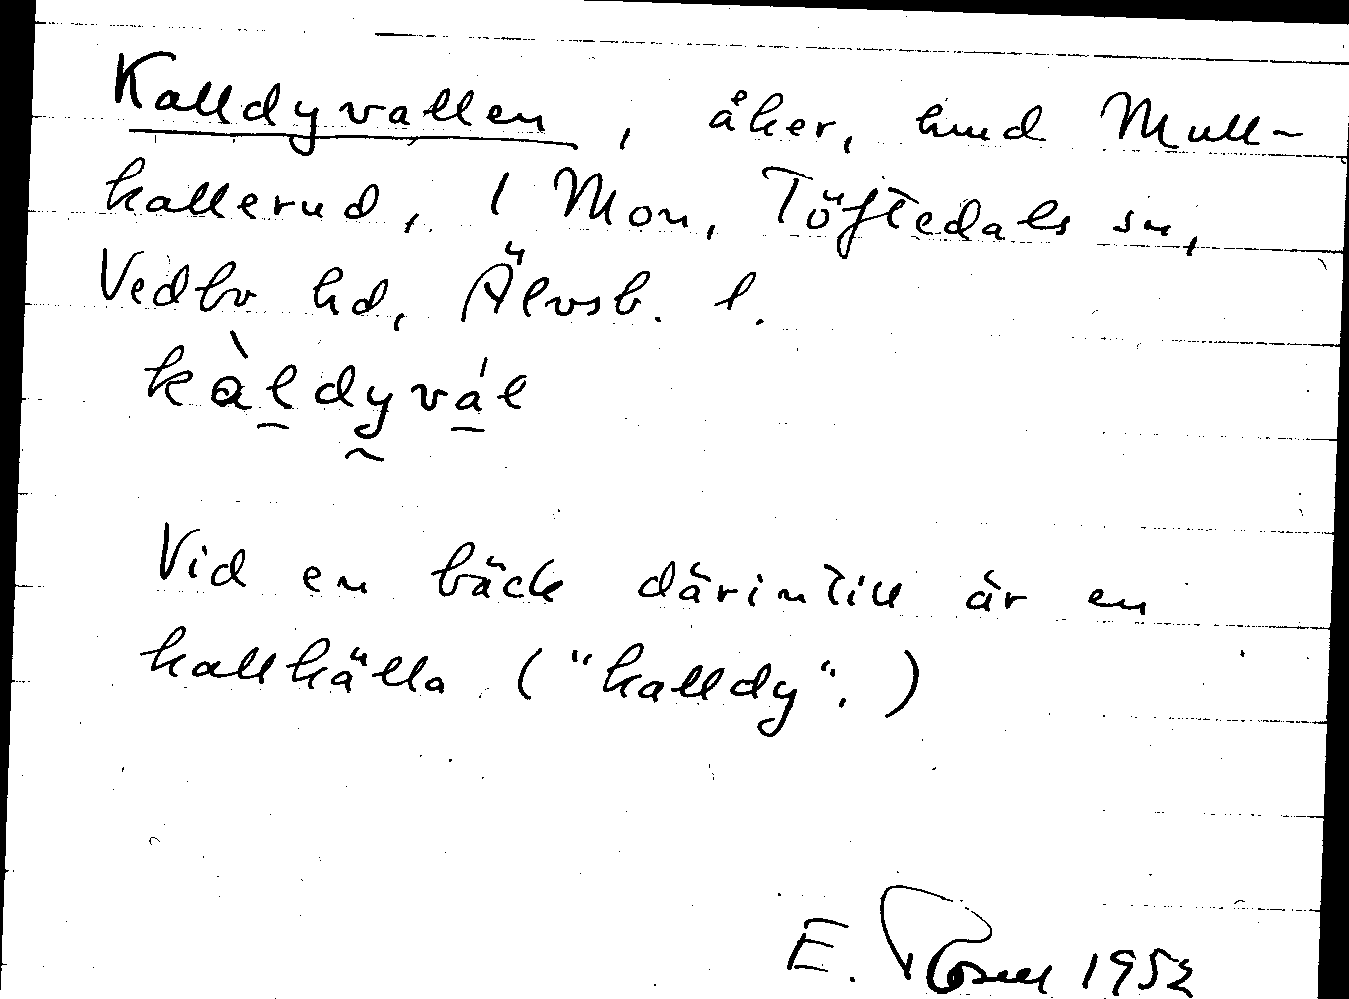 Kalldyvallen, åker, hmd Mull-
kallerud, 1 Mon, Töftedals sn,
Vedbo hd, Älvsb. l.
kàldyvál
Vid en bäck därintill är en
kallkälla ("kalldy".)
E. 1952